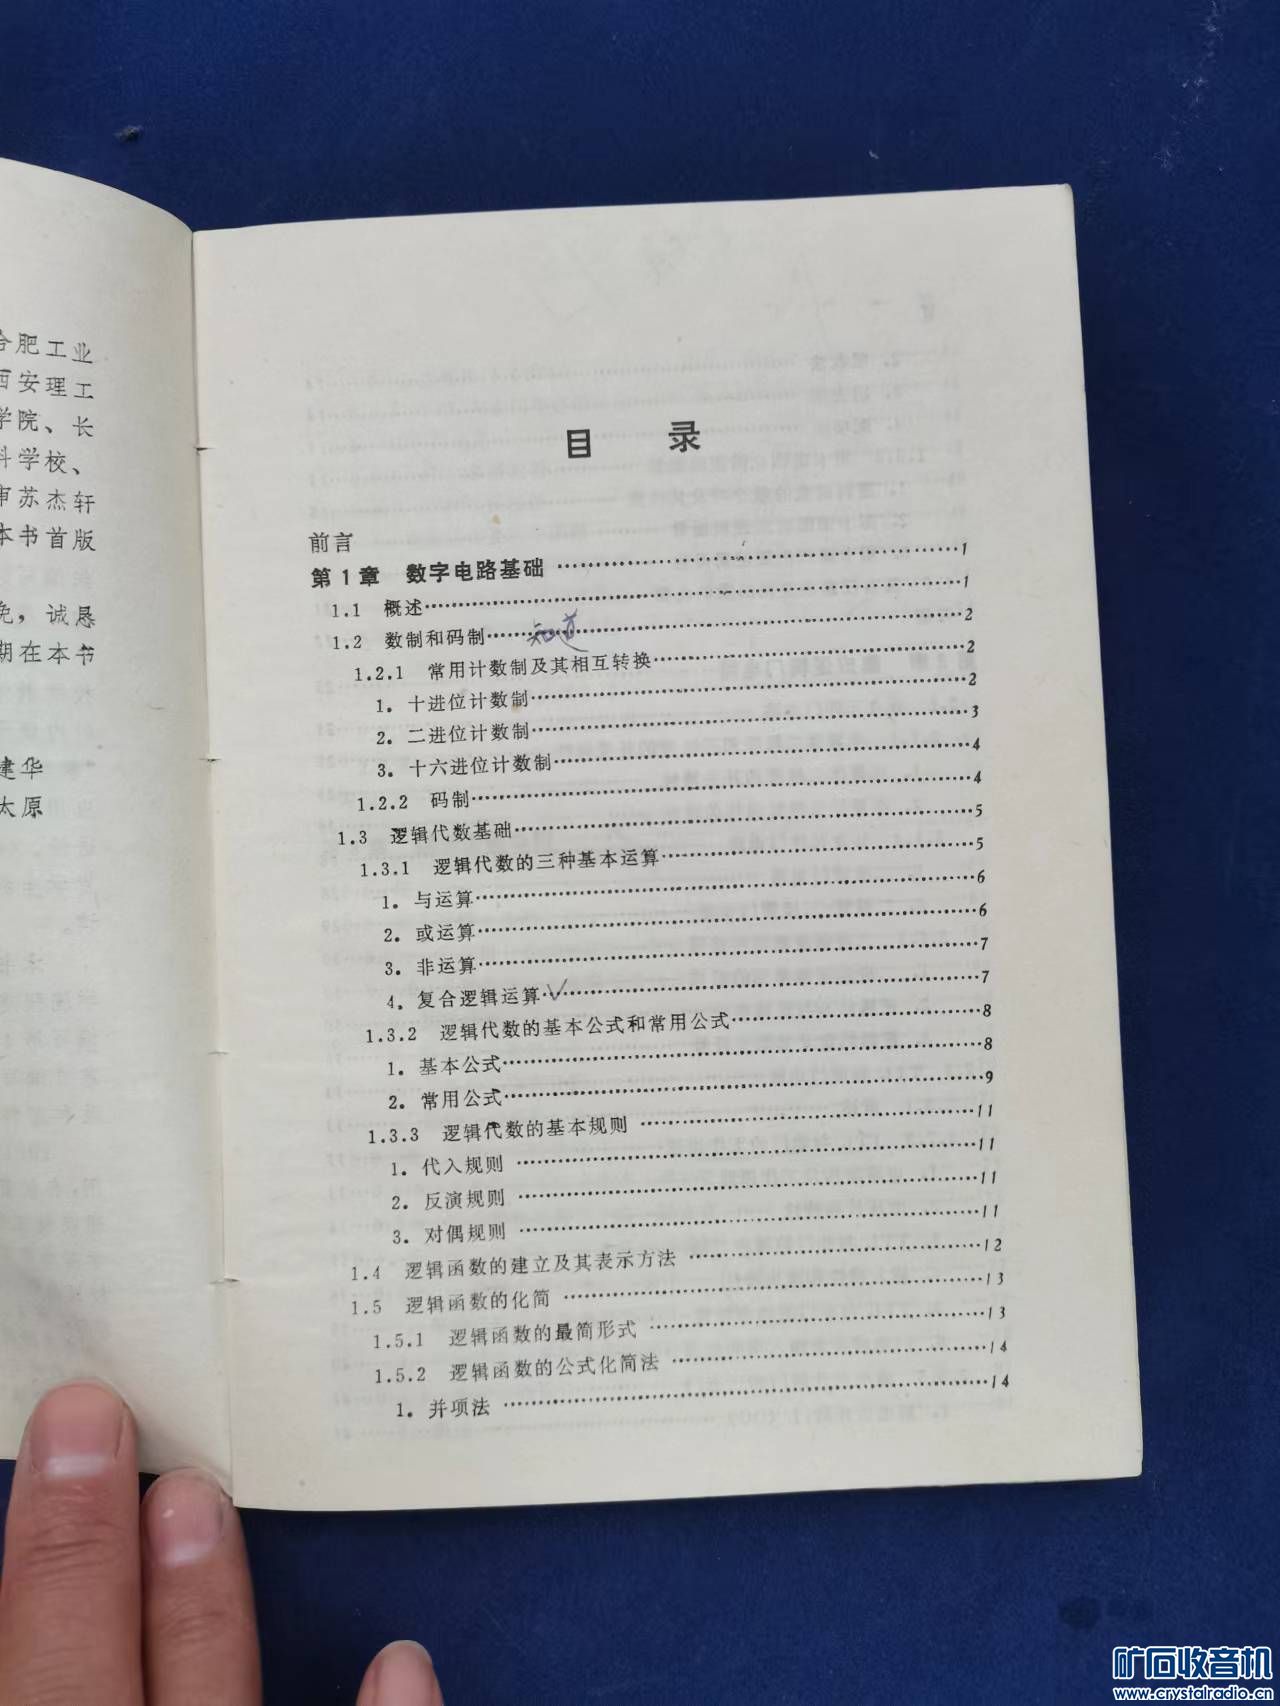 合肥工业
西安理工
学院、长
科学校、
审苏杰轩
本书首版
免，诚恳
期在本书
建华
太原
目 录
前言
第1章 数字电路基础……1
1.1 概述……1
1.2 数制和码制……2
知道
1.2.1 常用计数制及其相互转换……2
1. 十进位计数制……2
2. 二进位计数制……3
3. 十六进位计数制……4
1.2.2 码制……4
1.3 逻辑代数基础……5
1.3.1 逻辑代数的三种基本运算……5
1. 与运算……6
2. 或运算……6
3. 非运算……7
4. 复合逻辑运算✓……7
1.3.2 逻辑代数的基本公式和常用公式……8
1. 基本公式……8
2. 常用公式……9
1.3.3 逻辑代数的基本规则……11
1. 代入规则……11
2. 反演规则……11
3. 对偶规则……11
1.4 逻辑函数的建立及其表示方法……12
1.5 逻辑函数的化简……13
1.5.1 逻辑函数的最简形式……13
1.5.2 逻辑函数的公式化简法……14
1. 并项法……14
矿石收音机
www.crystalradio.cn